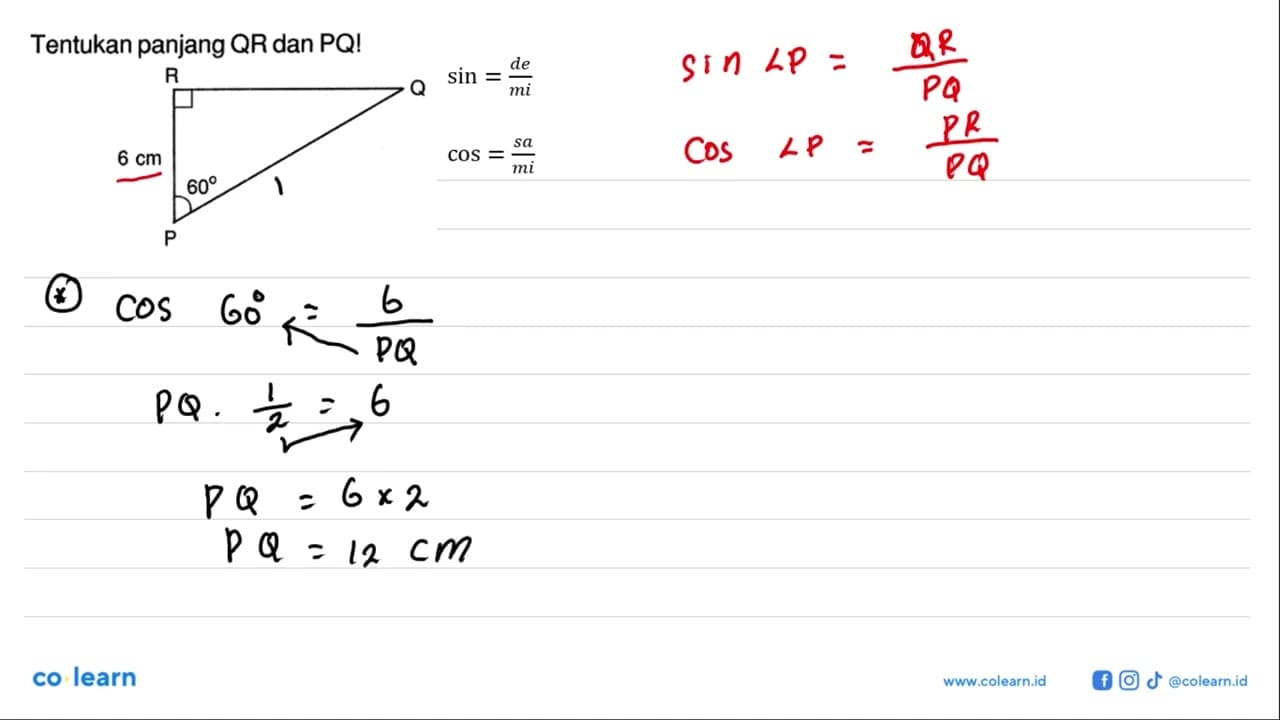 Tentukan panjang QR dan PQ!
R
Q
6 cm
60°
P
sin = de/mi
cos = sa/mi
sin ∠P = QR/PQ
cos ∠P = PR/PQ
* cos 60° = 6/PQ
PQ . 1/2 = 6
PQ = 6 × 2
PQ = 12 cm
co learn
www.colearn.id
@colearn.id